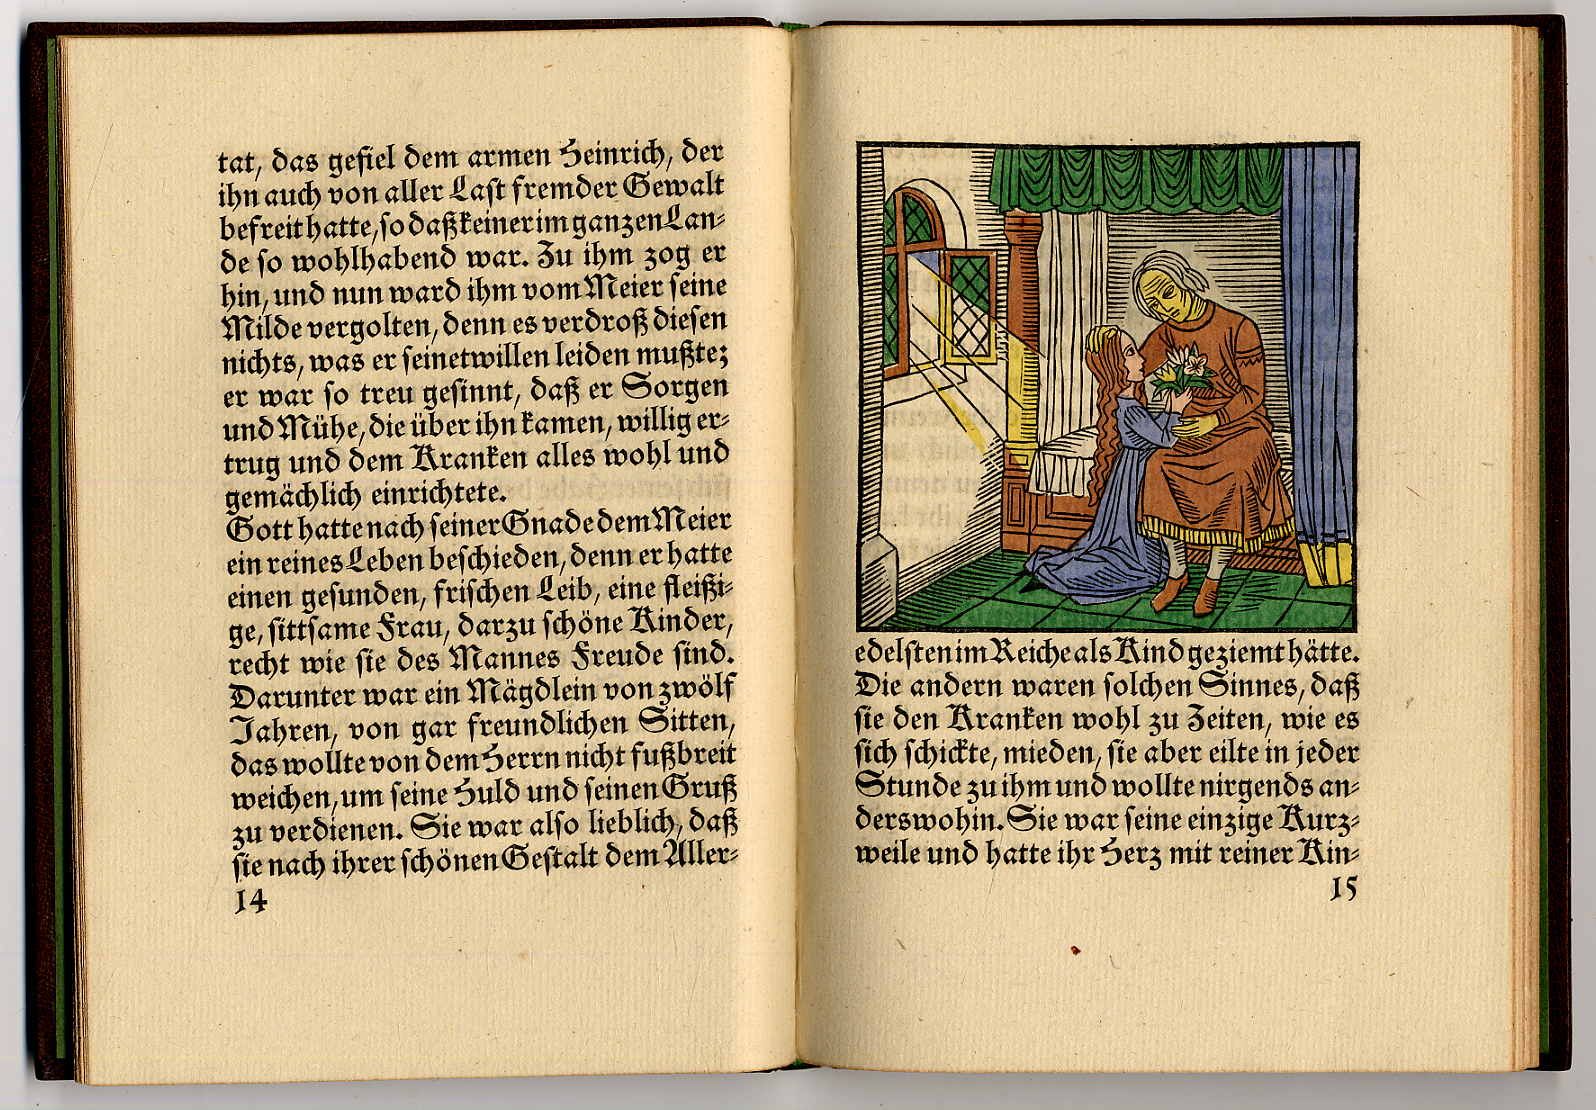 tat, das gefiel dem armen Heinrich, der
ihn auch von aller Last fremder Gewalt
befreit hatte, so daß keiner im ganzen Lan⸗
de so wohlhabend war. Zu ihm zog er
hin, und nun ward ihm vom Meier seine
Milde vergolten, denn es verdroß diesen
nichts, was er seinetwillen leiden mußte;
er war so treu gesinnt, daß er Sorgen
und Mühe, die über ihn kamen, willig er⸗
trug und dem Kranken alles wohl und
gemächlich einrichtete.
Gott hatte nach seiner Gnade dem Meier
ein reines Leben beschieden, denn er hatte
einen gesunden, frischen Leib, eine fleißi⸗
ge, sittsame Frau, darzu schöne Kinder,
recht wie sie des Mannes Freude sind.
Darunter war ein Mägdlein von zwölf
Jahren, von gar freundlichen Sitten,
das wollte von dem Herrn nicht fußbreit
weichen, um seine Huld und seinen Gruß
zu verdienen. Sie war also lieblich, daß
sie nach ihrer schönen Gestalt dem Aller⸗
14
edelsten im Reiche als Kind geziemt hätte.
Die andern waren solchen Sinnes, daß
sie den Kranken wohl zu Zeiten, wie es
sich schickte, mieden, sie aber eilte in jeder
Stunde zu ihm und wollte nirgends an⸗
derswohin. Sie war seine einzige Kurz⸗
weile und hatte ihr Herz mit reiner Kin⸗
15